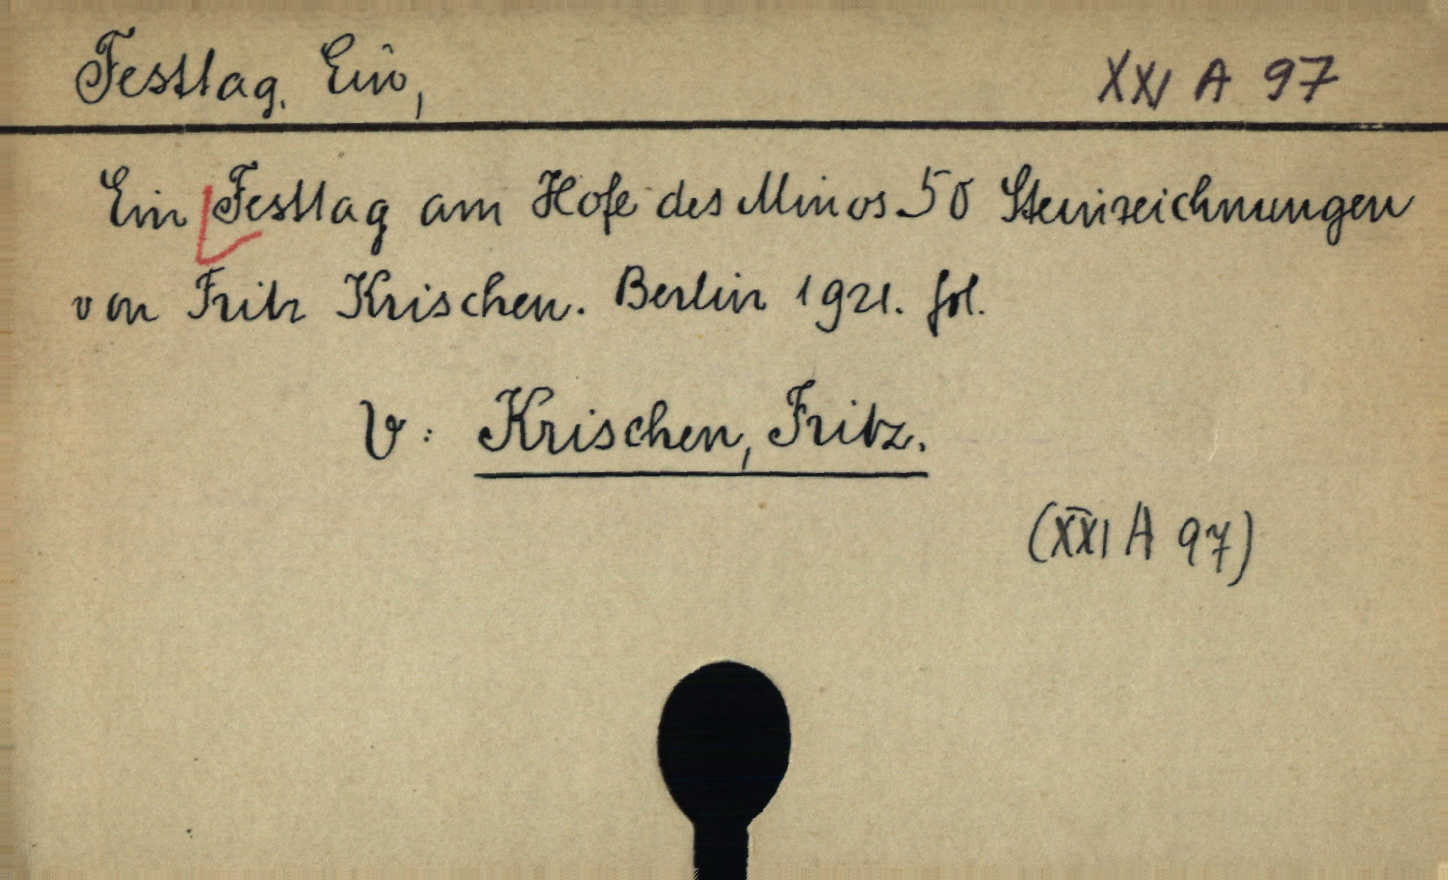 Festtag, Ein,
XXI A 97
Ein Festtag am Hofe des Minos 50 Steinzeichnungen
von Fritz Krischen. Berlin 1921. fol.
V: Krischen, Fritz.
(XXI A 97)